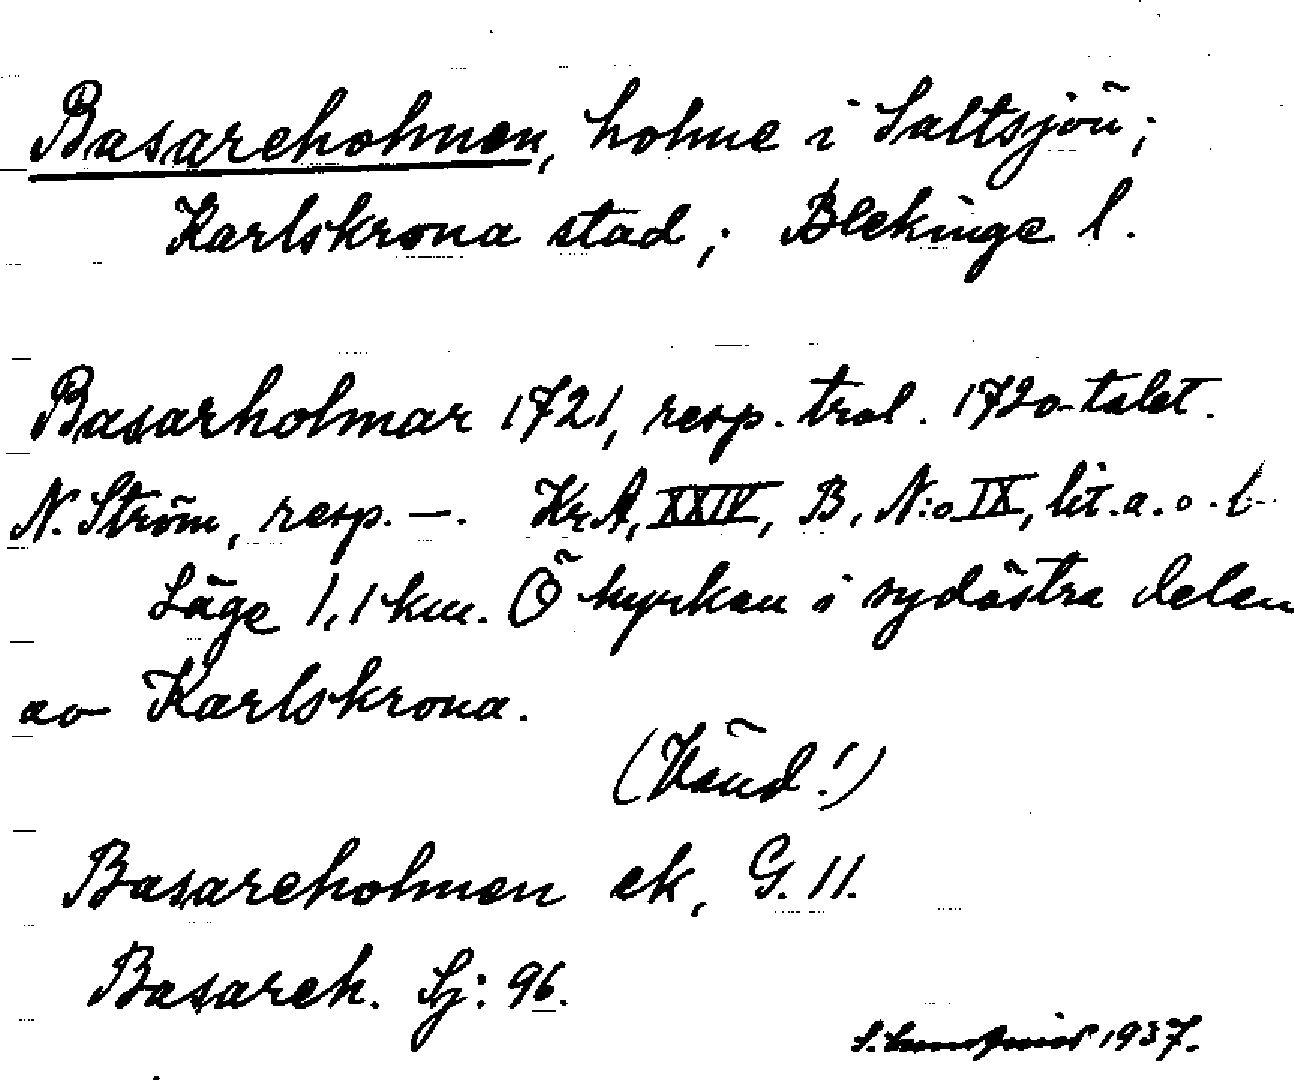 Basareholmen, holme i Saltsjön;
Karlskrona stad; Blekinge l.
Basarholmar 1721, resp. trol. 1720-talet.
N. Ström, resp. —. KrA, XXIV, B, N:o IX, lit. a. o. b
Läge 1,1 km. Ö kyrkan i sydöstra delen
av Karlskrona.
(Vänd!)
Basareholmen ek, G. 11.
Basareh. Sj: 96.
S. 1937.